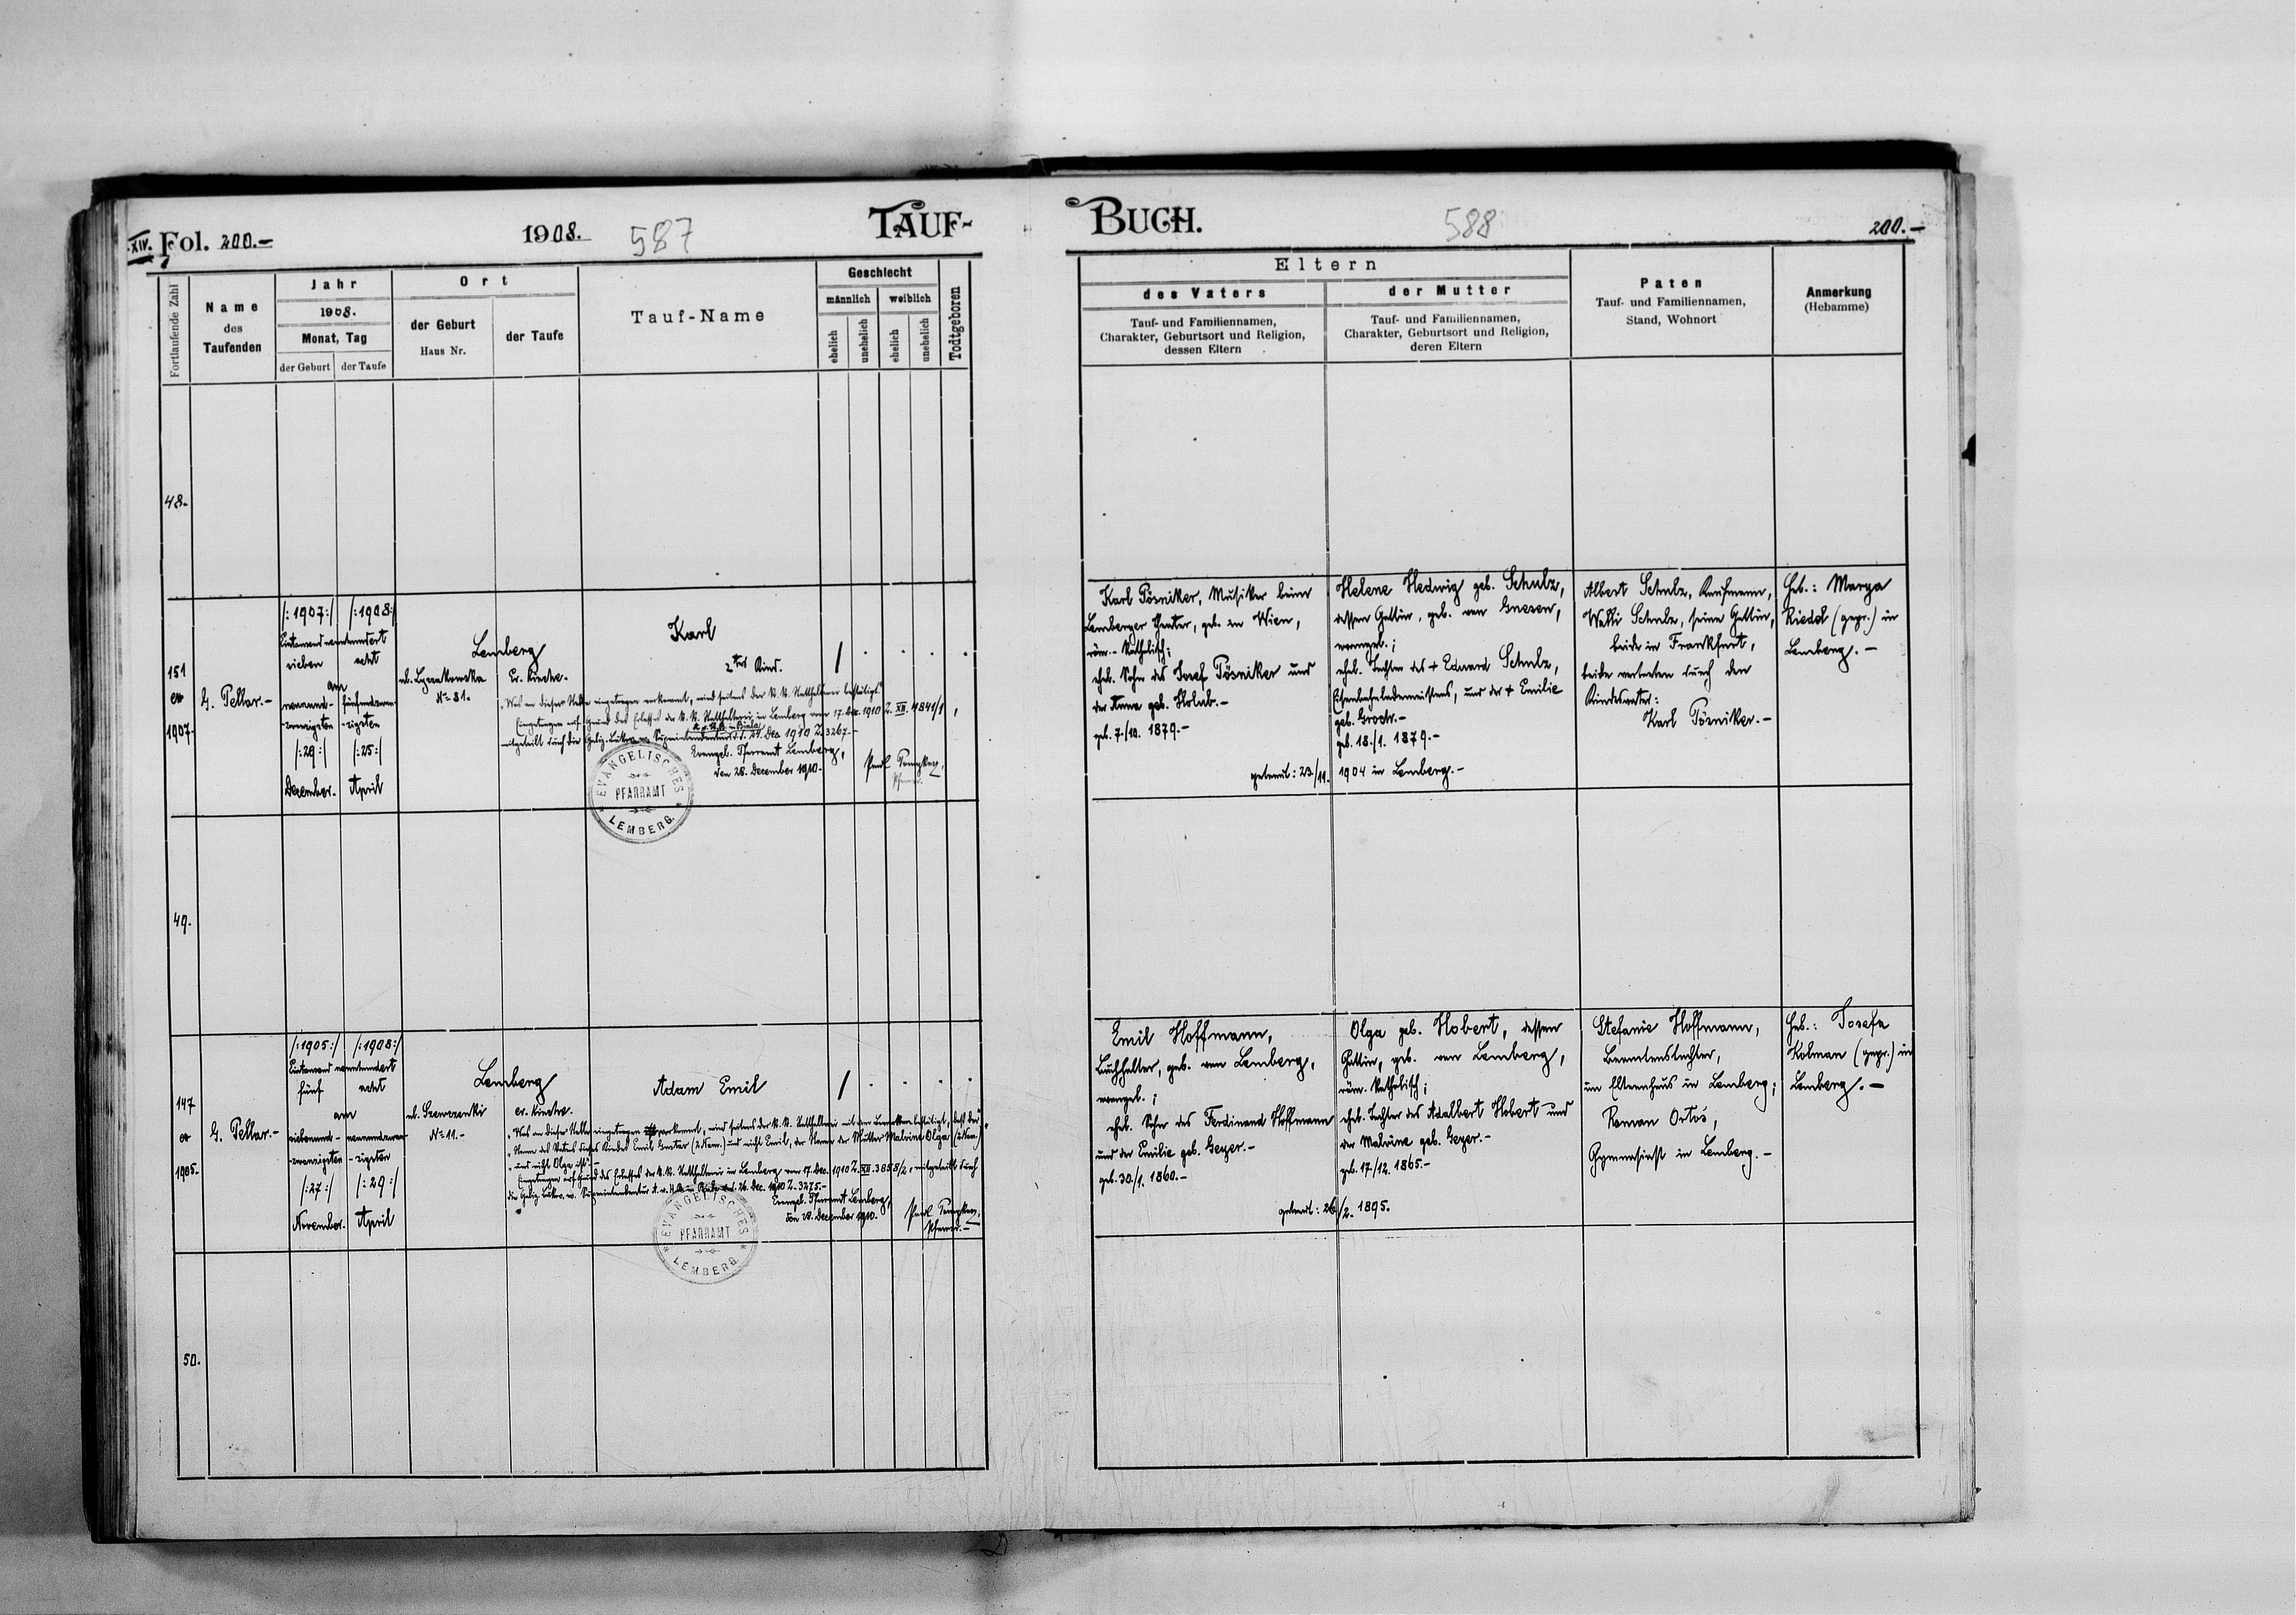 XIV. Fol. 200.-
1908.
587
TAUF-
Fortlaufende Zahl
Name
des
Taufenden
Jahr
1908.
Monat, Tag
der Geburt
der Taufe
Ort
der Geburt
Haus Nr.
der Taufe
Tauf-Name
Geschlecht
männlich
weiblich
ehelich
unehelich
ehelich
unehelich
Todtgeboren
48.
151
ex
1907.
G. Pellar.-
/:1907:/ /:1908:/
Eintausend neunhundert
sieben acht
am
neunund- fünfundzwan-
zwanzigsten -zigsten
/:29:/ /:25:/
Dezember. April
Lemberg
ul. Łyczakowska
No 81.
Ev. Kirche.
Karl
2tes Kind.
"Was an dieser Stelle eingetragen vorkommt, wird seitens der K. K. Statthalterei bestätigt."
Eingetragen auf Grund des Erlasses der K. K. Statthalterei in Lemberg vom 17. Dec. 1910 Z. XII. 4841/1,
A. u. H. B. in Biala
mitgeteilt durch die Superintendentur d. d. 24. Dec 1910 Z. 3267.-
Evangel. Pfarramt Lemberg,
den 28. December 1910.-
Pfarrer.
EVANGELISCHES
PFARRAMT
LEMBERG.
49.
147
ex
1905.
G. Pellar.-
/:1905:/ /:1908:/
Eintausend neunhundert
fünf acht
am
siebenund- neunundzwan-
zwanzigsten -zigsten
/:27:/ /:29:/
November. April
Lemberg
ul. Szewczenki
No 11.-
ev. Kirche.
Adam Emil
"Was an dieser Stelle eingetragen vorkommt, wird seitens der K. K. Statthalterei mit dem Bemerken bestätigt, daß der
"Name des Vaters dieses Kindes Emil Gustav (2 Nam.) und nicht Emil, der Name der Mutter Malvine Olga (2 Nam.)
"und nicht Olga ist".-
Eingetragen auf Grund des Erlasses der K. K. Statthalterei in Lemberg vom 17. Dec. 1910 Z. XII. 3858/2, mitgeteilt durch
die Superintendentur A. u. H. B. in Biala d. d. 26. Dec. 1910 Z. 3275.-
Evangel. Pfarramt Lemberg,
den 28. December 1910.
Pfarrer.-
EVANGELISCHES
PFARRAMT
LEMBERG.
50.
BUCH.
588
200.-
Eltern
des Vaters
Tauf- und Familiennamen,
Charakter, Geburtsort und Religion,
dessen Eltern
der Mutter
Tauf- und Familiennamen,
Charakter, Geburtsort und Religion,
deren Eltern
Paten
Tauf- und Familiennamen,
Stand, Wohnort
Anmerkung
(Hebamme)
Karl Pösniker, Musiker beim
Lemberger Theater, geb. in Wien,
röm.-katholisch;
ehel. Sohn des Josef Pösniker und
der Anna geb. Holub.-
geb. 7./10. 1879.-
Helene Hedwig geb. Schulz,
dessen Gattin, geb. von Gnesen,
evangel.;
ehel. Tochter des + Eduard Schulz,
Eisenbahnlademeisters, und der + Emilie
geb. Groch.-
geb. 18./1. 1879.-
getraut: 23/11. 1904 in Lemberg.-
Albert Schulz, Kaufmann,
Walli Schulz, seine Gattin,
beide in Frankfurt,
beide vertreten durch den
Kindesvater:
Karl Pösniker.-
Heb.: Marya
Riedel (gepr.) in
Lemberg.-
Emil Hoffmann,
Buchhalter, geb. von Lemberg,
evangel.;
ehel. Sohn des Ferdinand Hoffmann
und der Emilie geb. Geyer.-
geb. 30./1. 1860.-
Olga geb. Hobert, dessen
Gattin, geb. von Lemberg,
röm. katholisch;
ehel. Tochter des Adalbert Hobert und
der Malvine geb. Geyer.-
geb. 17./12. 1865.-
getraut: 26/2. 1895.
Stefanie Hoffmann,
Beamtenstochter,
im Elternhaus in Lemberg;
Roman Ortoś,
Gymnasiast in Lemberg.-
Heb.: Josefa
Kolman (gepr.) in
Lemberg.-